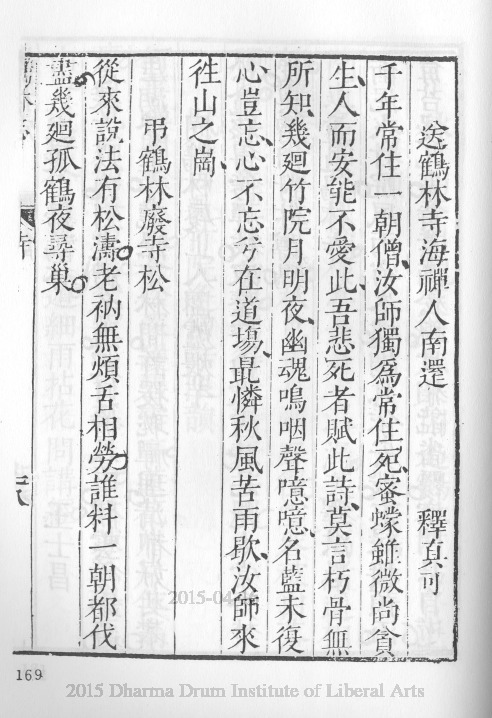 送鶴林寺海禪人南還 釋真可
千年常住一朝僧、汝師獨爲常住死、蜜蠓雖微尚貪
生、人而安能不愛此、吾悲死者賦此詩、莫言朽骨無
所知、幾廻竹院月明夜、幽魂嗚咽聲噫噫、名藍未復
心豈忘、心不忘兮在道場、最憐秋風苦雨歇、汝師來
徃山之崗、
弔鶴林廢寺松
從來說法有松濤。老衲無煩舌相勞。誰料一朝都伐
盡。幾廻孤鶴夜尋巢。
169
2015 Dharma Drum Institute of Liberal Arts